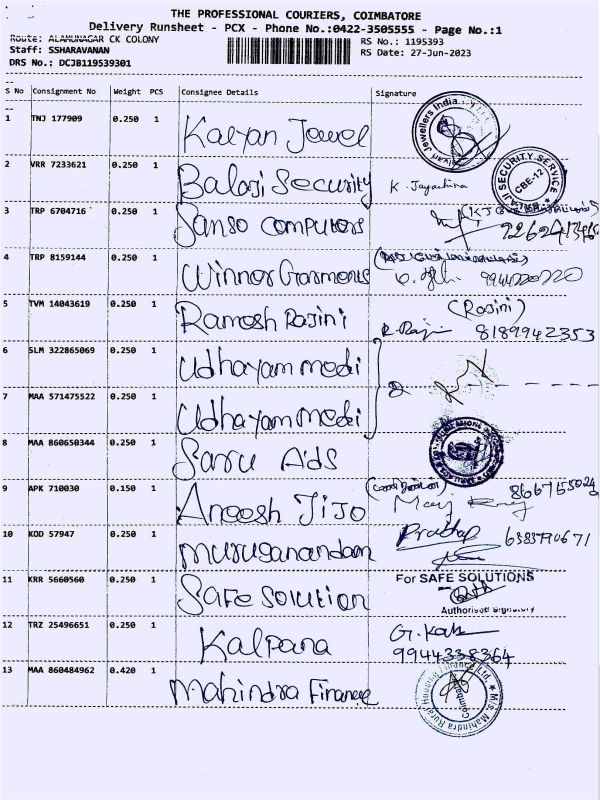 THE PROFESSIONAL COURIERS, COIMBATORE
Delivery Runsheet - PCX - Phone No.:0422-3505555 - Page No.:1
Route: ALAMUNAGAR CK COLONY
RS No.: 1195393
Staff: SSHARAVANAN
RS Date: 27-Jun-2023
DRS No.: DCJB119539301
S No Consignment No Weight PCS Consignee Details Signature
1 TNJ 177909 0.250 1 Kalyan Jewel
Jewellers India
2 VRR 7233621 0.250 1 Balaji Security K. Jayachitra
SECURITY SERVICE CBE-12
3 TRP 6704716 0.250 1 Sanso Computers
4 TRP 8159144 0.250 1 Winner Garments
5 TVM 14043619 0.250 1 Ramesh Rajini (Rajini)
R. Raji 8189942353
6 SLM 322865069 0.250 1 Udhayam medi
7 MAA 571475522 0.250 1 Udhayam medi 2
8 MAA 860650344 0.250 1 Saru Ads
9 APK 710030 0.150 1 Aneesh Jijo
10 KOD 57947 0.250 1 Muruganandam Prathap
11 KRR 5660560 0.250 1 Safe Solution
For SAFE SOLUTIONS
Authorised Signatory
12 TRZ 25496651 0.250 1 Kalpana G. Kal
9944338364
13 MAA 860484962 0.420 1 Mahindra Finance
M/s. Mahindra Rural Housing Finance Ltd. Coimbatore